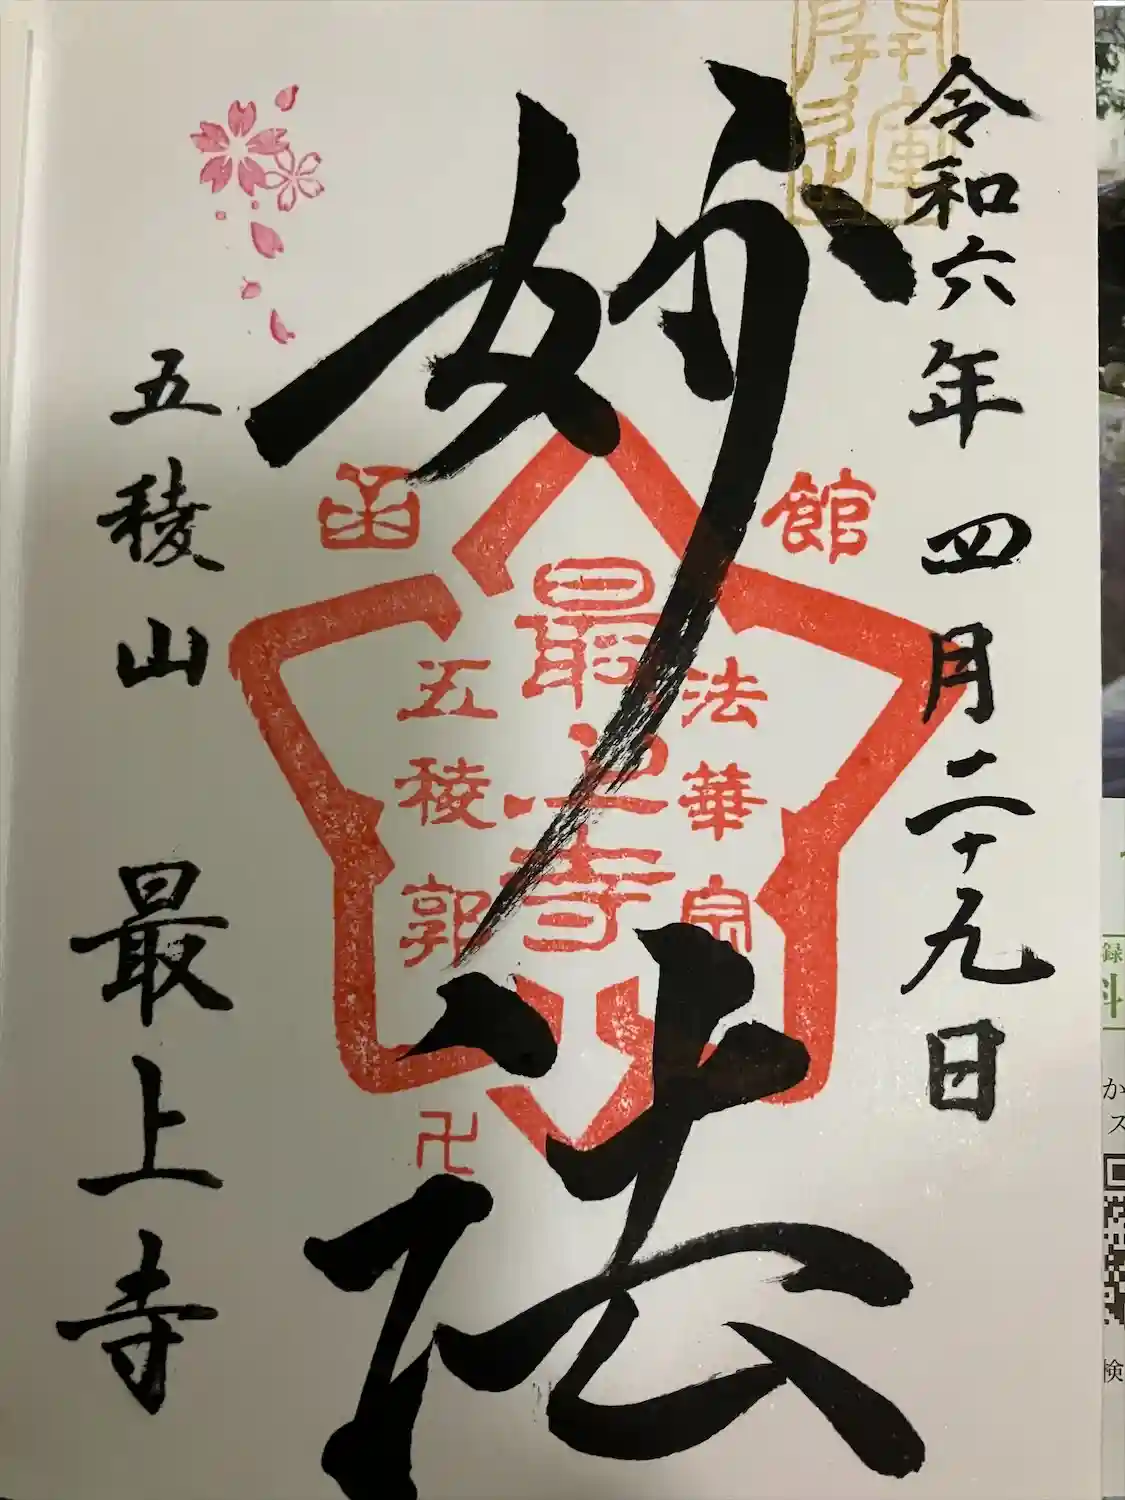 開運
令和六年 四月二十九日
妙法
函館
法華宗
最上寺
五稜郭
卍
五稜山 最上寺
録
科
か
ス
検